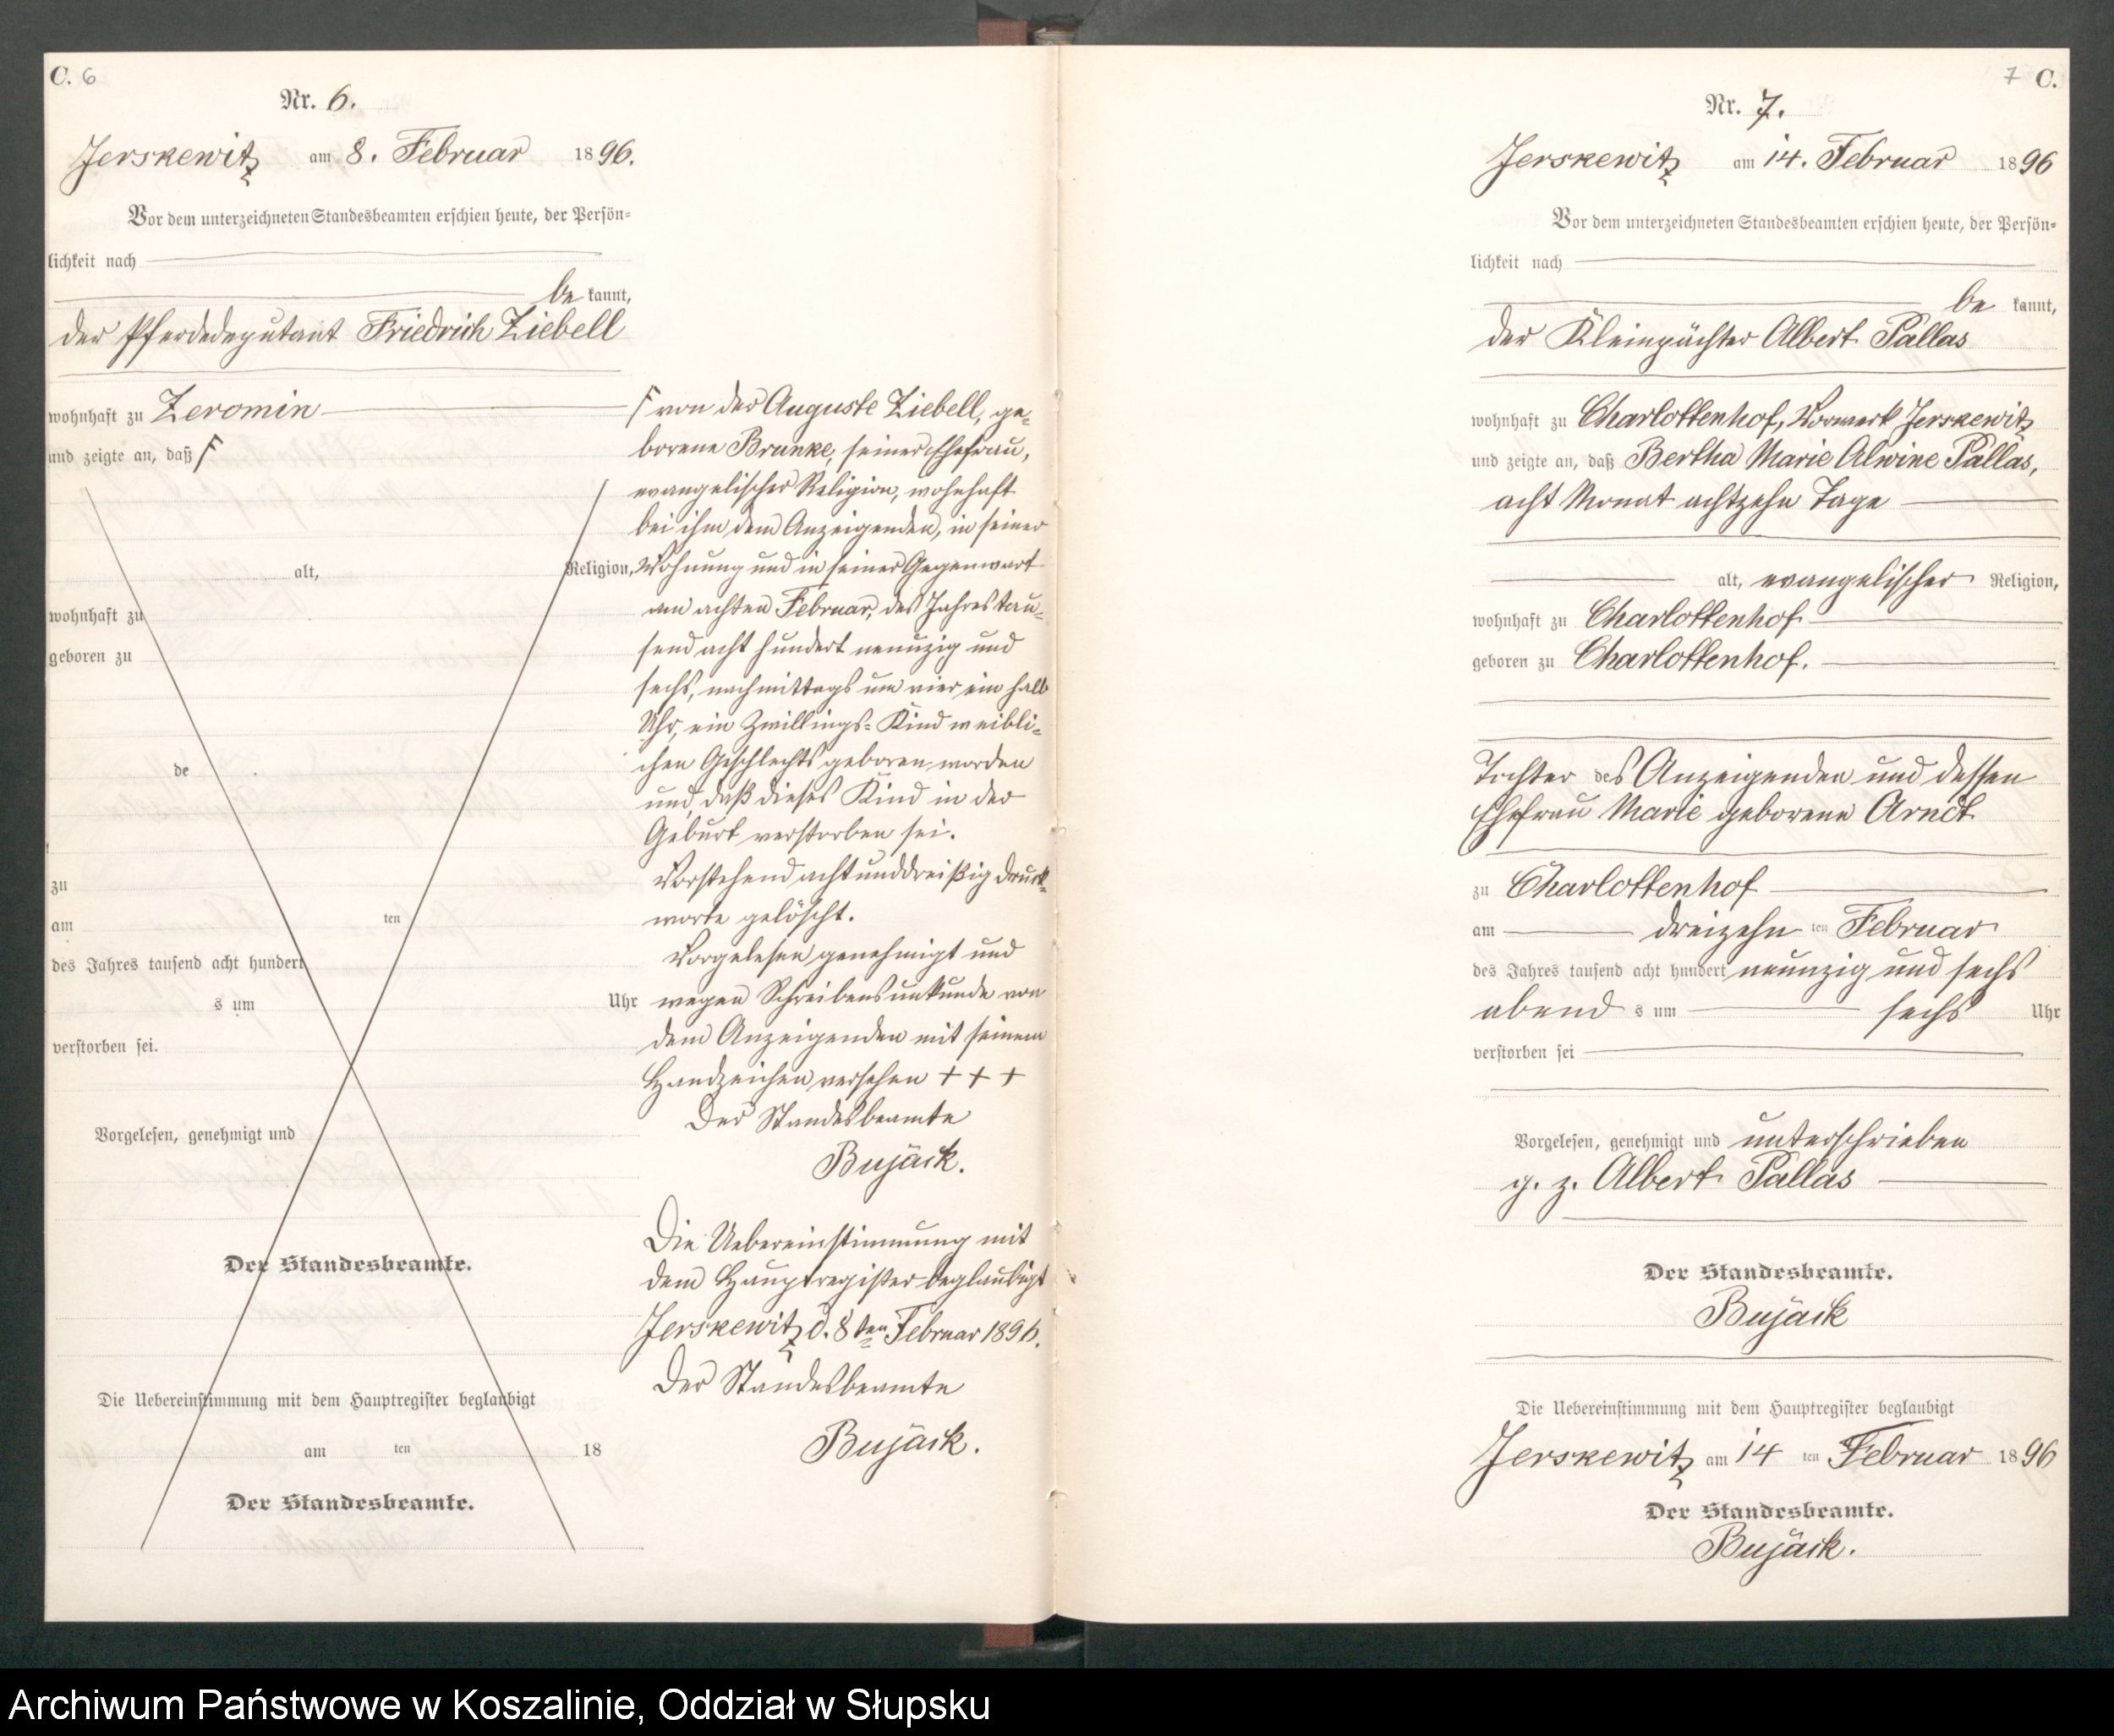 C. 6
Nr. 6.
Jerskewitz am 8. Februar 1896.
Vor dem unterzeichneten Standesbeamten erschien heute, der Persön=
lichkeit nach
be kannt,
der Pferdedeputant Friedrich Ziebell
wohnhaft zu Zeromin
und zeigte an, daß F
alt, Religion,
wohnhaft zu
geboren zu
de
zu
am ten
des Jahres tausend acht hundert
s um Uhr
verstorben sei.
Vorgelesen, genehmigt und
Der Standesbeamte.
Die Uebereinstimmung mit dem Hauptregister beglaubigt
am ten 18
Der Standesbeamte.
F von der Auguste Ziebell, ge=
borene Brunke, seiner Ehefrau,
evangelischer Religion, wohnhaft
bei ihm dem Anzeigenden, in seiner
Wohnung und in seiner Gegenwart
am achten Februar, des Jahres tau=
send acht hundert neunzig und
sechs, nachmittags um vier ein halb
Uhr, ein Zwillings=Kind weibli=
chen Geschlechts geboren worden
und, daß dieses Kind in der
Geburt verstorben sei.
Vorstehend achtunddreißig Druck=
worte gelöscht.
Vorgelesen genehmigt und
wegen Schreibensunkunde von
dem Anzeigenden mit seinem
Handzeichen versehen + + +
Der Standesbeamte
Bujack.
Die Uebereinstimmung mit
dem Hauptregister beglaubigt
Jerskewitz d. 8ten Februar 1896.
Der Standesbeamte
Bujack.
7 C.
Nr. 7.
Jerskewitz am 14. Februar 1896
Vor dem unterzeichneten Standesbeamten erschien heute, der Persön=
lichkeit nach
be kannt,
der Kleinpächter Albert Pallas
wohnhaft zu Charlottenhof, Vorwerk Jerskewitz
und zeigte an, daß Bertha Marie Alwine Pallas,
acht Monat achtzehn Tage
alt, evangelischer Religion,
wohnhaft zu Charlottenhof
geboren zu Charlottenhof.
Tochter des Anzeigenden und dessen
Ehefrau Marie geborene Arndt
zu Charlottenhof
am dreizehn ten Februar
des Jahres tausend acht hundert neunzig und sechs
abend s um sechs Uhr
verstorben sei
Vorgelesen, genehmigt und unterschrieben
g. z. Albert Pallas
Der Standesbeamte.
Bujack
Die Uebereinstimmung mit dem Hauptregister beglaubigt
Jerskewitz am 14 ten Februar 1896
Der Standesbeamte.
Bujack.
Archiwum Państwowe w Koszalinie, Oddział w Słupsku